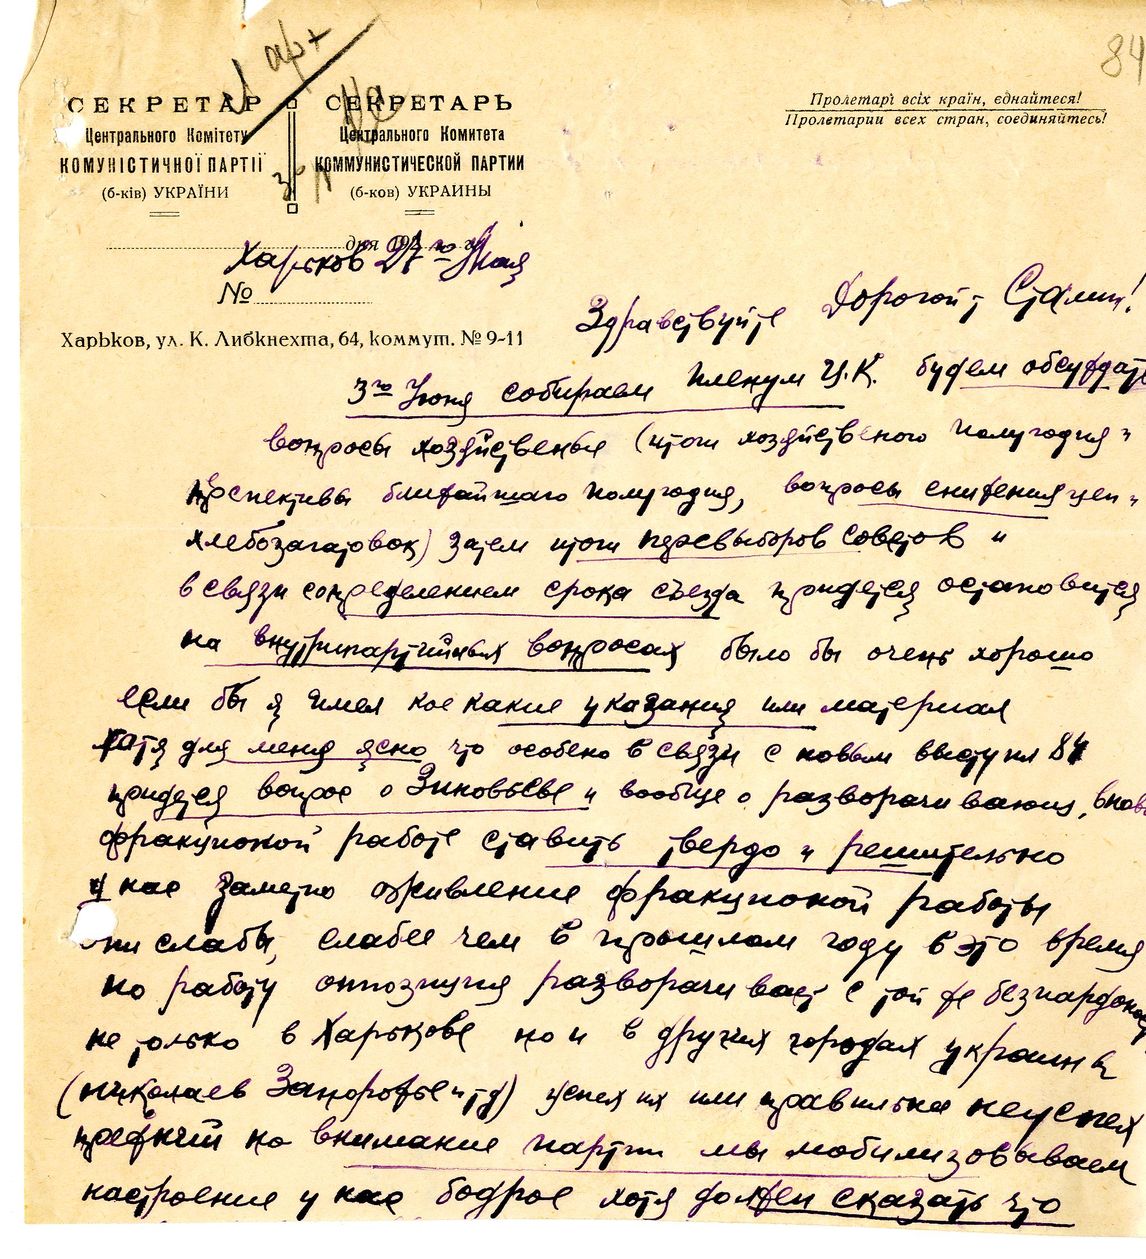 84
СЕКРЕТАР
Центрального Комітету
КОМУНІСТИЧНОЇ ПАРТІЇ
(б-ків) УКРАЇНИ
СЕКРЕТАРЬ
Центрального Комитета
КОММУНИСТИЧЕСКОЙ ПАРТИИ
(б-ков) УКРАИНЫ
Пролетарі всіх країн, єднайтеся!
Пролетарии всех стран, соединяйтесь!
дня 192
Харьков 27го Мая
№
Харьков, ул. К. Либкнехта, 64, коммут. № 9-11
Здравствуйте Дорогой т Сталин!
3го Июня собираем пленум Ц.К. будем обсуждать
вопросы хозяйственые (итоги хозяйственого полугодия и
перспективы ближайшаго полугодия, вопросы снижения цен и
хлебозаготовок) затем итоги перевыборов советов и
в связи сопределением срока съезда придется остановится
на внутрипартийных вопросах было бы очень хорошо
если бы я имел кое какие указания или материал
хатя для меня ясно что особено в связи с новым выступл 84
придется вопрос о Зиновьеве и вообще о разворачивающ. вновь
фракционой работе ставить твердо и решительно
у нас заметно оживление фракционой работы
они слабы, слабее чем в прошлом году в это время
но работу оппозиция разворачивает с той же безпардоно
не только в Харькове но и в других городах украины
(николаев Запорожье итд) успех их или правильна неуспех
прежний но внимание партии мы мобилизовываем
настроение у нас бодрое хотя должен сказать что